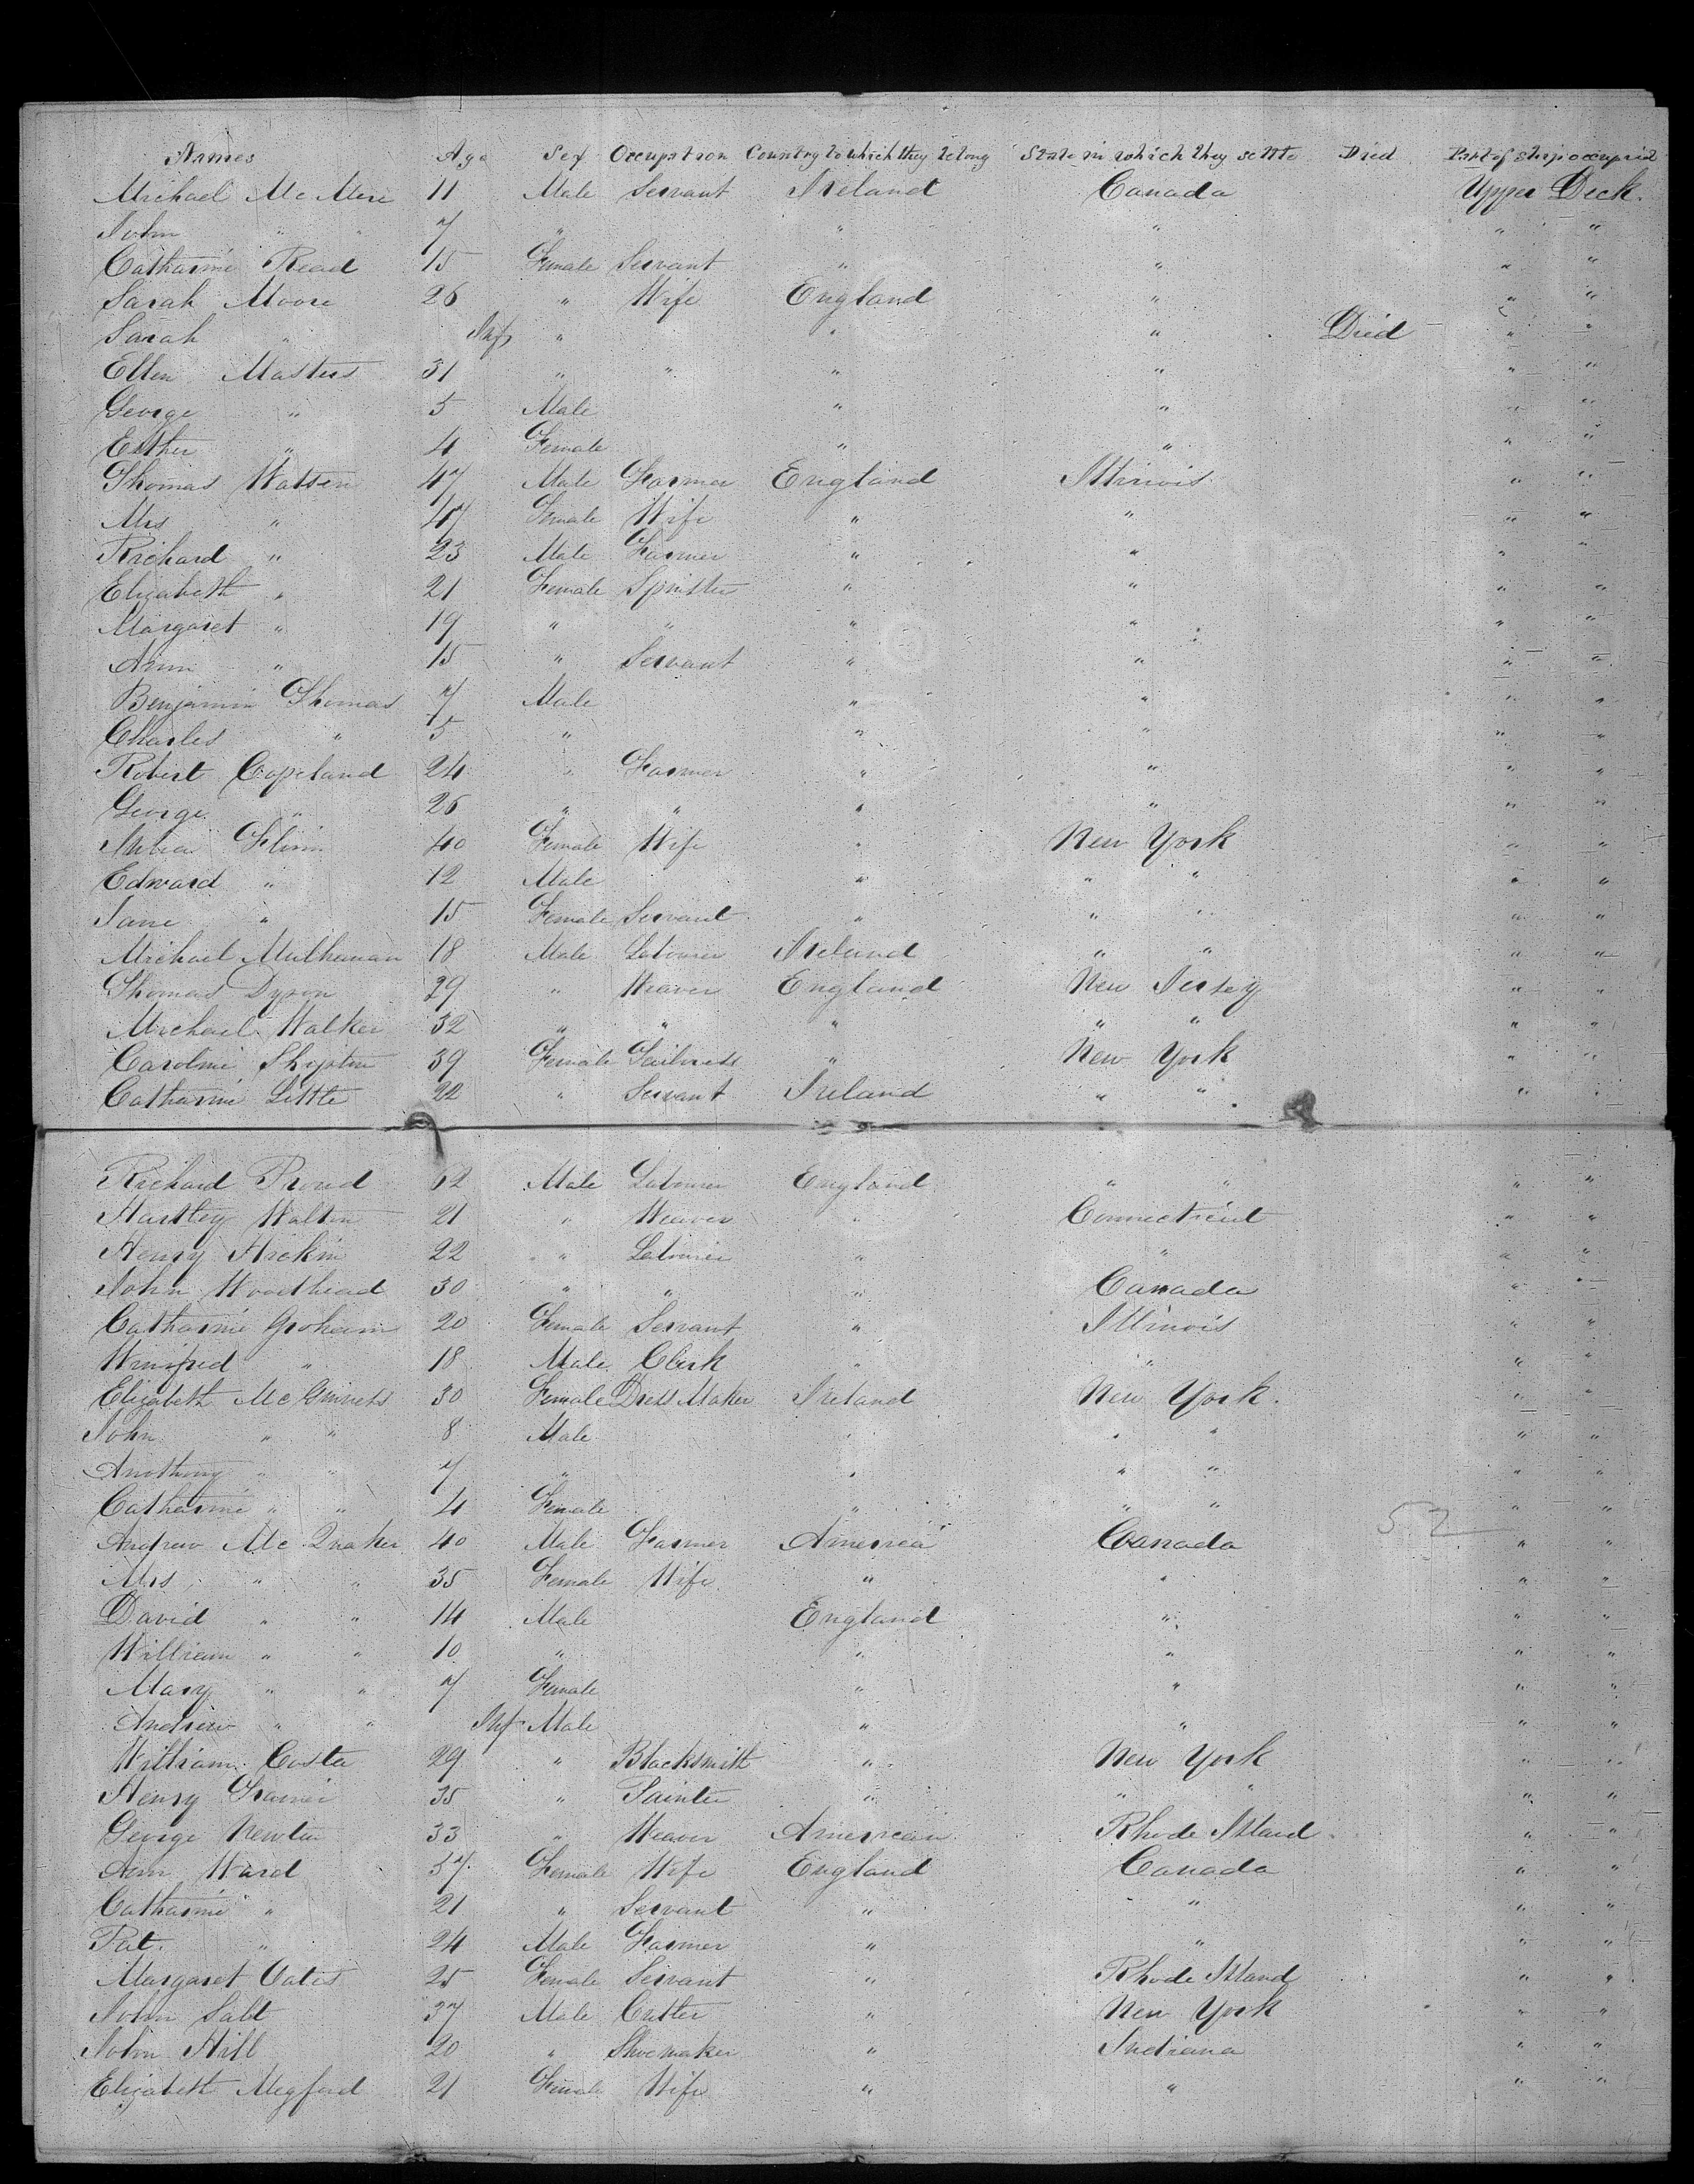 Names Age Sex Occupation Country to which they belong State in which they settle Died Part of ship occupied
Michael Mc 11 Male Servant Ireland Canada Upper Deck.
John " " 7 " " " " "
Catharine Read 15 Female Servant " " " "
Sarah Moore 26 " Wife England " " "
Sarah " Inf " " " Died " "
Ellen Masters 31 " " " " " "
George " 5 Male " " " "
Esther " 4 Female " " " "
Thomas Watson 47 Male Farmer England Illinois " "
Mrs " 47 Female Wife " " " "
Richard " 23 Male Farmer " " " "
Elizabeth " 21 Female Spinster " " " "
Margaret " 19 " " " " " "
Ann " 15 " Servant " " " "
Benjamin Thomas 7 Male " " " "
Charles " 5 " " " " "
Robert Copeland 24 " Farmer " " " "
George " 26 " " " " " "
Flinn 40 Female Wife " New York " "
Edward " 12 Male " " " " "
Jane " 15 Female Servant " " " " "
Michael Mulhernan 18 Male Labourer Ireland " " " "
Thomas Dyson 29 " Weaver England New Jersey " "
Michael Walker 32 " " " " " " "
Caroline 39 Female Tailoress " New York " "
Catharine Little 22 " Servant Ireland " " " "
Richard Proud 62 Male Labourer England " " " "
Hartley Walton 21 " Weaver " Connecticut " "
Henry Hickin 22 " Labourer " " " "
John Woodhead 30 " " " Canada " "
Catharine Graham 20 Female Servant " Illinois " "
Winifred " 18 Male Clerk " " " "
Elizabeth Mc Ginness 30 Female Dress Maker Ireland New York. " "
John " " 8 Male " " " " "
Anothony " " 7 " " " " " "
Catharine " " 4 Female " " " " "
Andrew Mc Quaker 40 Male Farmer America Canada 52 " "
Mrs " " 35 Female Wife " " " "
David " " 14 Male England " " "
William " " 10 " " " " "
Mary " " 7 Female " " " "
Andrew " " Inf Male " " " "
William Coster 29 " Blacksmith " New York " "
Henry 35 " Painter " " " " "
George Newton 33 " Weaver American Rhode Island " "
Ann Ward 57 Female Wife England Canada " "
Catharine " 21 " Servant " " " "
Pat. " 24 Male Farmer " " " "
Margaret Oates 25 Female Servant " Rhode Island " "
John Salt 37 Male Cutler " New York " "
John Hill 20 " Shoemaker " Indiana " "
Elizabeth Megford 21 Female Wife " " " "